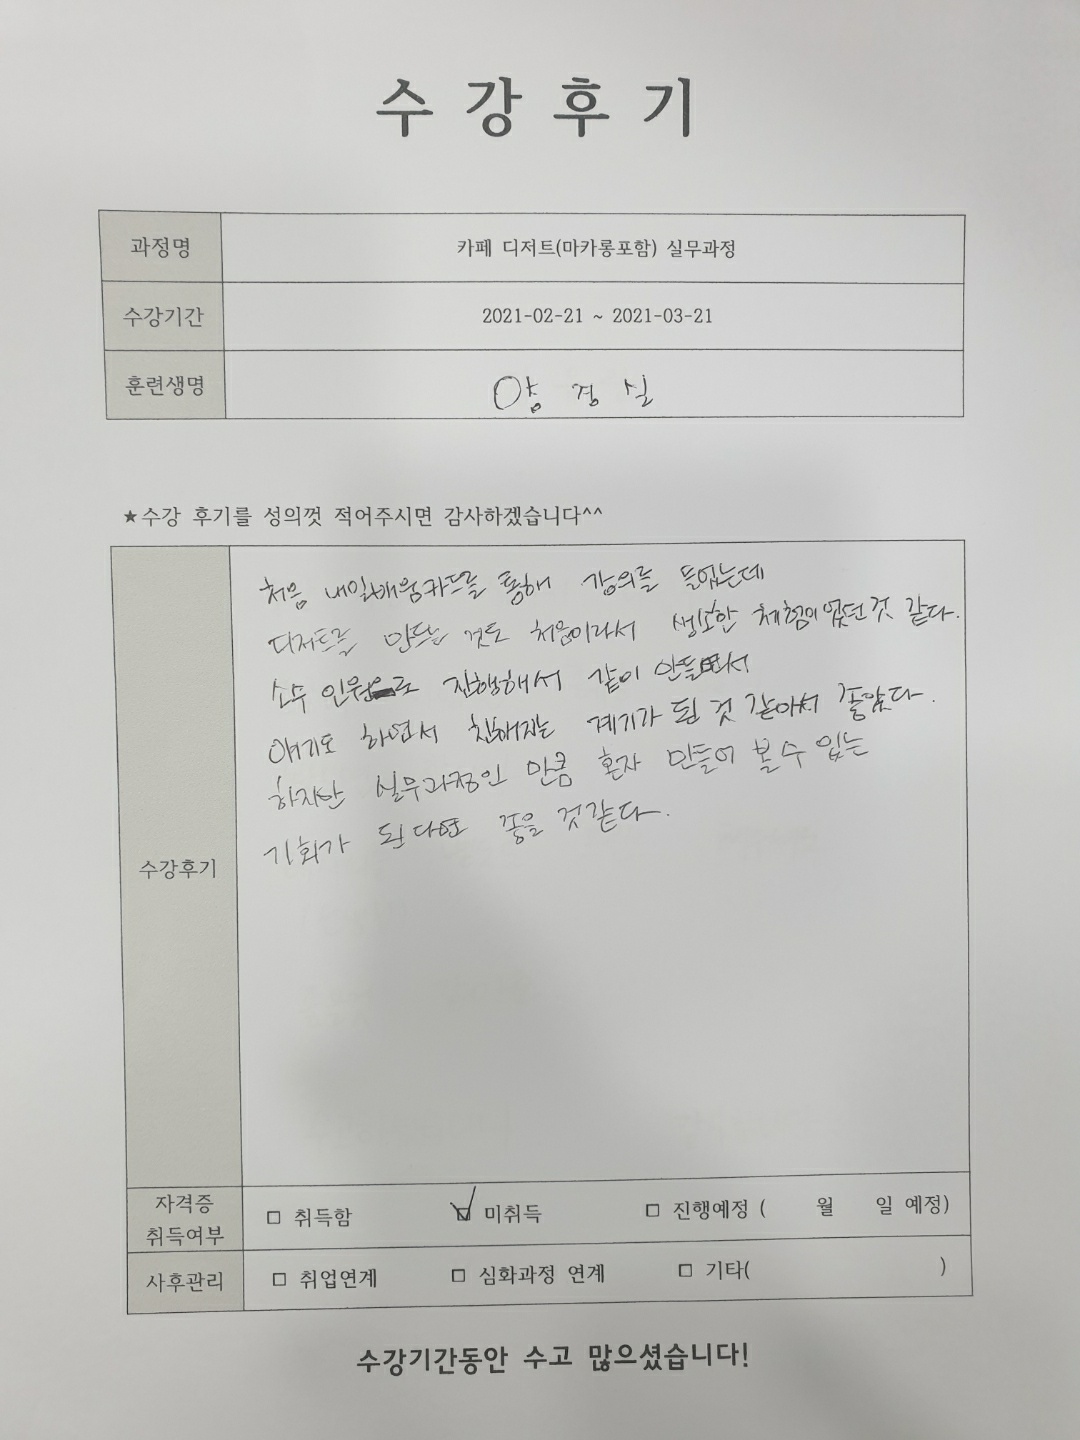 수강후기
과정명 카페 디저트(마카롱포함) 실무과정
수강기간 2021-02-21 ~ 2021-03-21
훈련생명 양경실
★수강 후기를 성의껏 적어주시면 감사하겠습니다^^
처음 내일배움카드를 통해 강의를 들었는데
디저트를 만드는 것도 처음이라서 생소한 체험이였던 것 같다.
소수 인원으로 진행해서 같이 만들면서
얘기도 하면서 친해지는 계기가 된 것 같아서 좋았다.
하지만 실무과정인 만큼 혼자 만들어 볼 수 있는
수강후기
기회가 된다면 좋을 것 같다.
자격증
취득여부
□ 취득함 □ 미취득 □ 진행예정 ( 월 일 예정)
사후관리 □ 취업연계 □ 심화과정 연계 □ 기타( )
수강기간동안 수고 많으셨습니다!